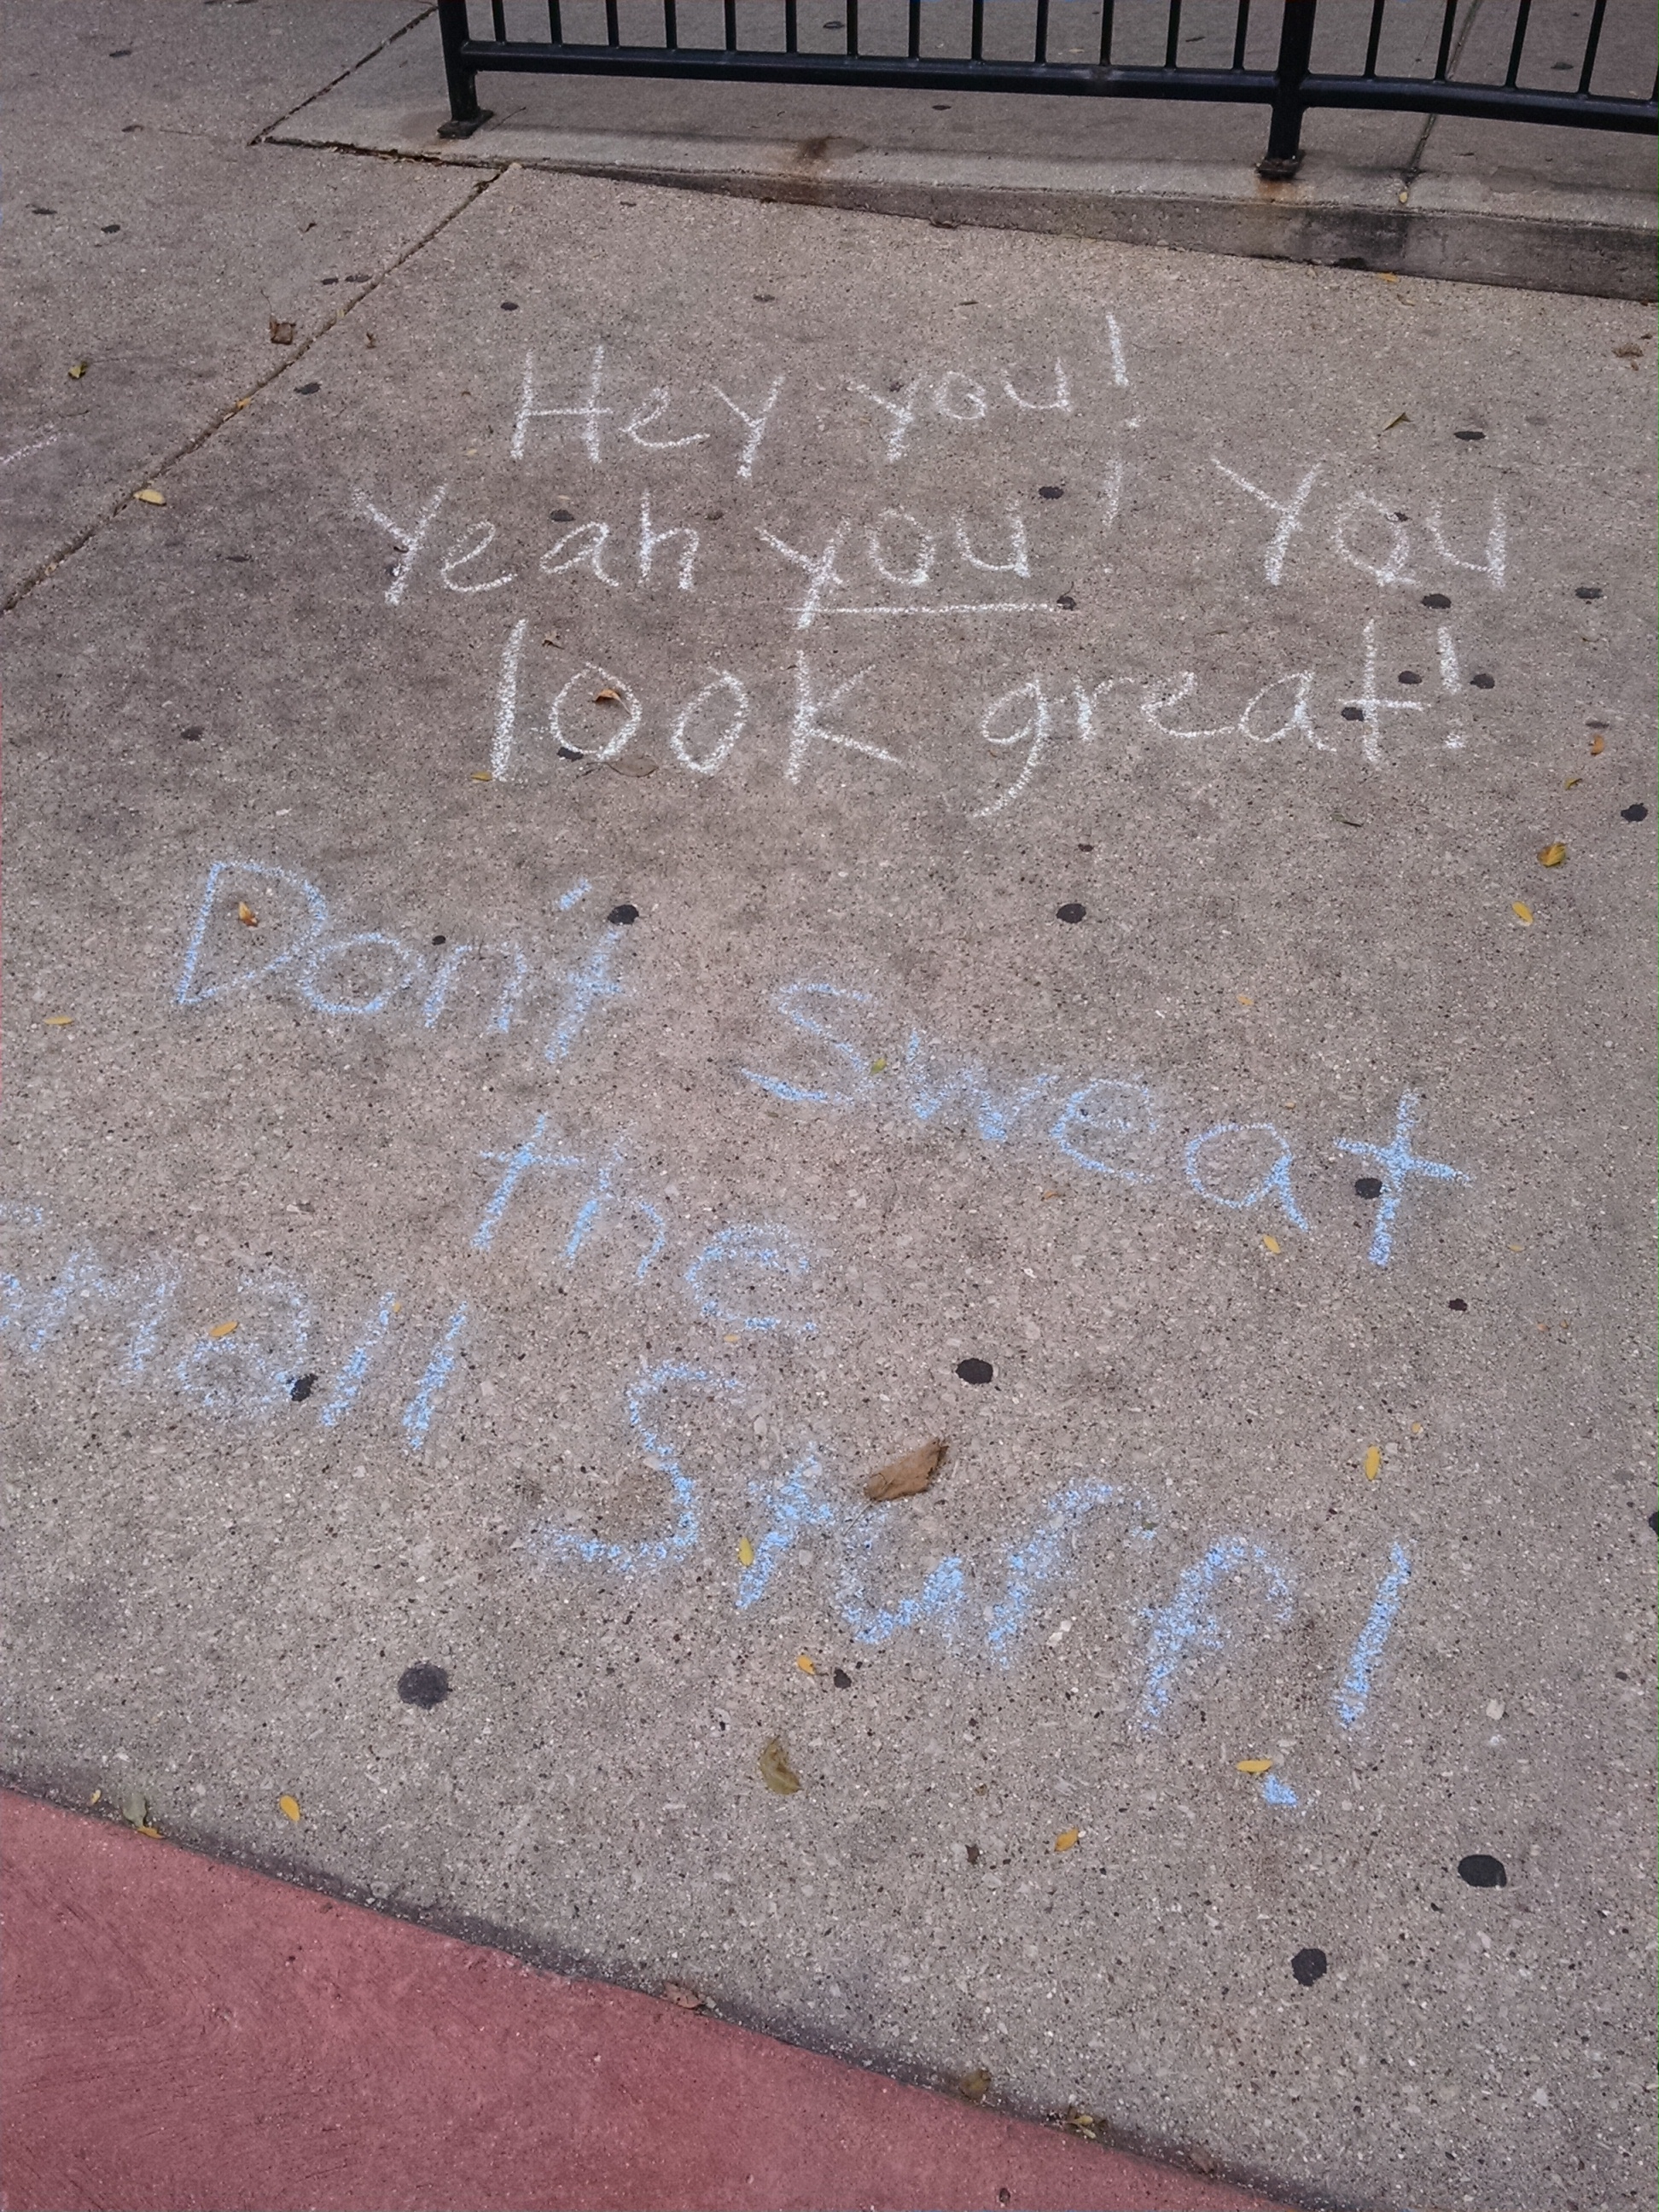 Hey you!
Yeah you! You
look great!
Don't Sweat
the
small
Stuff!